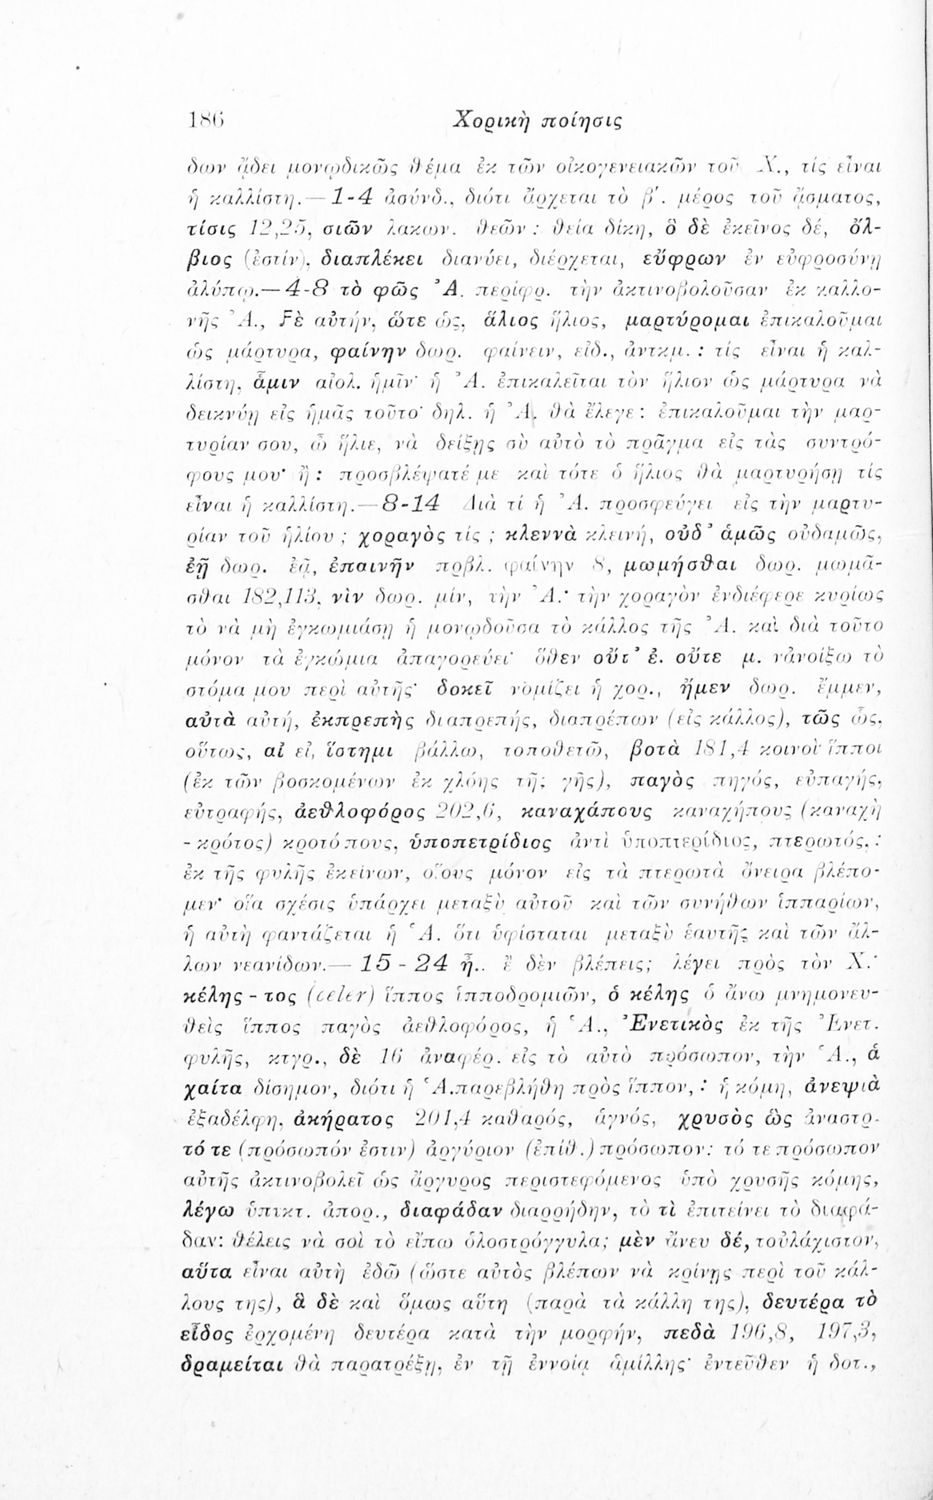 186 Χορικὴ ποίησις
δων ᾄδει μονῳδικῶς θέμα ἐκ τῶν οἰκογενειακῶν τοῦ Χ., τίς εἶναι
ἡ καλλίστη.— 1-4 ἀσύνδ., διότι ἄρχεται τὸ β΄. μέρος τοῦ ᾄσματος,
τίσις 12,25, σιῶν λακων. θεῶν : θεία δίκη, ὃ δὲ ἐκεῖνος δέ, ὄλ-
βιος (ἐστίν), διαπλέκει διανύει, διέρχεται, εὔφρων ἐν εὐφροσύνῃ
ἀλύπῳ.— 4-8 τὸ φῶς Ἀ. περίφρ. τὴν ἀκτινοβολοῦσαν ἐκ καλλο-
νῆς Ἀ., Ϝὲ αὐτήν, ὥτε ὡς, ἅλιος ἥλιος, μαρτύρομαι ἐπικαλοῦμαι
ὡς μάρτυρα, φαίνην δωρ. φαίνειν, εἰδ., ἀντκμ. : τίς εἶναι ἡ καλ-
λίστη, ἇμιν αἰολ. ἡμῖν· ἡ Ἀ. ἐπικαλεῖται τὸν ἥλιον ὡς μάρτυρα νὰ
δεικνύῃ εἰς ἡμᾶς τοῦτο· δηλ. ἡ Ἀ. θὰ ἔλεγε : ἐπικαλοῦμαι τὴν μαρ-
τυρίαν σου, ὦ ἥλιε, νὰ δείξῃς σὺ αὐτὸ τὸ πρᾶγμα εἰς τὰς συντρό-
φους μου· ἢ : προσβλέψατέ με καὶ τότε ὁ ἥλιος θὰ μαρτυρήσῃ τίς
εἶναι ἡ καλλίστη.— 8-14 Διὰ τί ἡ Ἀ. προσφεύγει εἰς τὴν μαρτυ-
ρίαν τοῦ ἡλίου ; χοραγὸς τίς ; κλεννὰ κλεινή, οὐδ’ ἁμῶς οὐδαμῶς,
ἐῇ δωρ. ἐᾷ, ἐπαινῆν πρβλ. φαίνην 8, μωμήσθαι δωρ. μωμᾶ-
σθαι 182,113, νὶν δωρ. μίν, τὴν Ἀ.· τὴν χοραγὸν ἐνδιέφερε κυρίως
τὸ νὰ μὴ ἐγκωμιάσῃ ἡ μονῳδοῦσα τὸ κάλλος τῆς Ἀ. καὶ διὰ τοῦτο
μόνον τὰ ἐγκώμια ἀπαγορεύει· ὅθεν οὔτ’ ἐ. οὔτε μ. νἀνοίξω τὸ
στόμα μου περὶ αὐτῆς· δοκεῖ νομίζει ἡ χορ., ἤμεν δωρ. ἔμμεν,
αὐτὰ αὐτή, ἐκπρεπὴς διαπρεπής, διαπρέπων (εἰς κάλλος), τῶς ὥς,
οὕτως, αἰ εἰ, ἵστημι βάλλω, τοποθετῶ, βοτὰ 181,4 κοινοὶ ἵπποι
(ἐκ τῶν βοσκομένων ἐκ χλόης τῆς γῆς), παγὸς πηγός, εὐπαγής,
εὐτραφής, ἀεθλοφόρος 202,6, καναχάπους καναχήπους (καναχὴ
- κρότος) κροτόπους, ὑποπετρίδιος ἀντὶ ὑποπτερίδιος, πτερωτός, :
ἐκ τῆς φυλῆς ἐκείνων, οἵους μόνον εἰς τὰ πτερωτὰ ὄνειρα βλέπο-
μεν· οἵα σχέσις ὑπάρχει μεταξὺ αὐτοῦ καὶ τῶν συνήθων ἱππαρίων,
ἡ αὐτὴ φαντάζεται ἡ Ἁ. ὅτι ὑφίσταται μεταξὺ ἑαυτῆς καὶ τῶν ἄλ-
λων νεανίδων.— 15 - 24 ἦ.. ἔ δὲν βλέπεις; λέγει πρὸς τὸν Χ.·
κέλης - τος (celer) ἵππος ἱπποδρομιῶν, ὁ κέλης ὁ ἄνω μνημονευ-
θεὶς ἵππος παγὸς ἀεθλοφόρος, ἡ Ἁ., Ἐνετικὸς ἐκ τῆς Ἐνετ.
φυλῆς, κτγρ., δὲ 16 ἀναφέρ. εἰς τὸ αὐτὸ πρόσωπον, τὴν Ἁ., ἁ
χαίτα δίσημον, διότι ἡ Ἁ.παρεβλήθη πρὸς ἵππον, : ἡ κόμη, ἀνεψιὰ
ἐξαδέλφη, ἀκήρατος 201,4 καθαρός, ἁγνός, χρυσὸς ὣς ἀναστρ.
τό τε (πρόσωπόν ἐστιν) ἀργύριον (ἐπίθ.) πρόσωπον: τό τε πρόσωπον
αὐτῆς ἀκτινοβολεῖ ὡς ἄργυρος περιστεφόμενος ὑπὸ χρυσῆς κόμης,
λέγω ὑπικτ. ἀπορ., διαφάδαν διαρρήδην, τὸ τὶ ἐπιτείνει τὸ διαφά-
δαν: θέλεις νὰ σοὶ τὸ εἴπω ὁλοστρόγγυλα; μὲν ἄνευ δέ, τοὐλάχιστον,
αὕτα εἶναι αὐτὴ ἐδῶ (ὥστε αὐτὸς βλέπων νὰ κρίνῃς περὶ τοῦ κάλ-
λους της), ἃ δὲ καὶ ὅμως αὕτη (παρὰ τὰ κάλλη της), δευτέρα τὸ
εἶδος ἐρχομένη δευτέρα κατὰ τὴν μορφήν, πεδὰ 196,8, 197,3,
δραμείται θὰ παρατρέξῃ, ἐν τῇ ἐννοίᾳ ἁμίλλης· ἐντεῦθεν ἡ δοτ.,